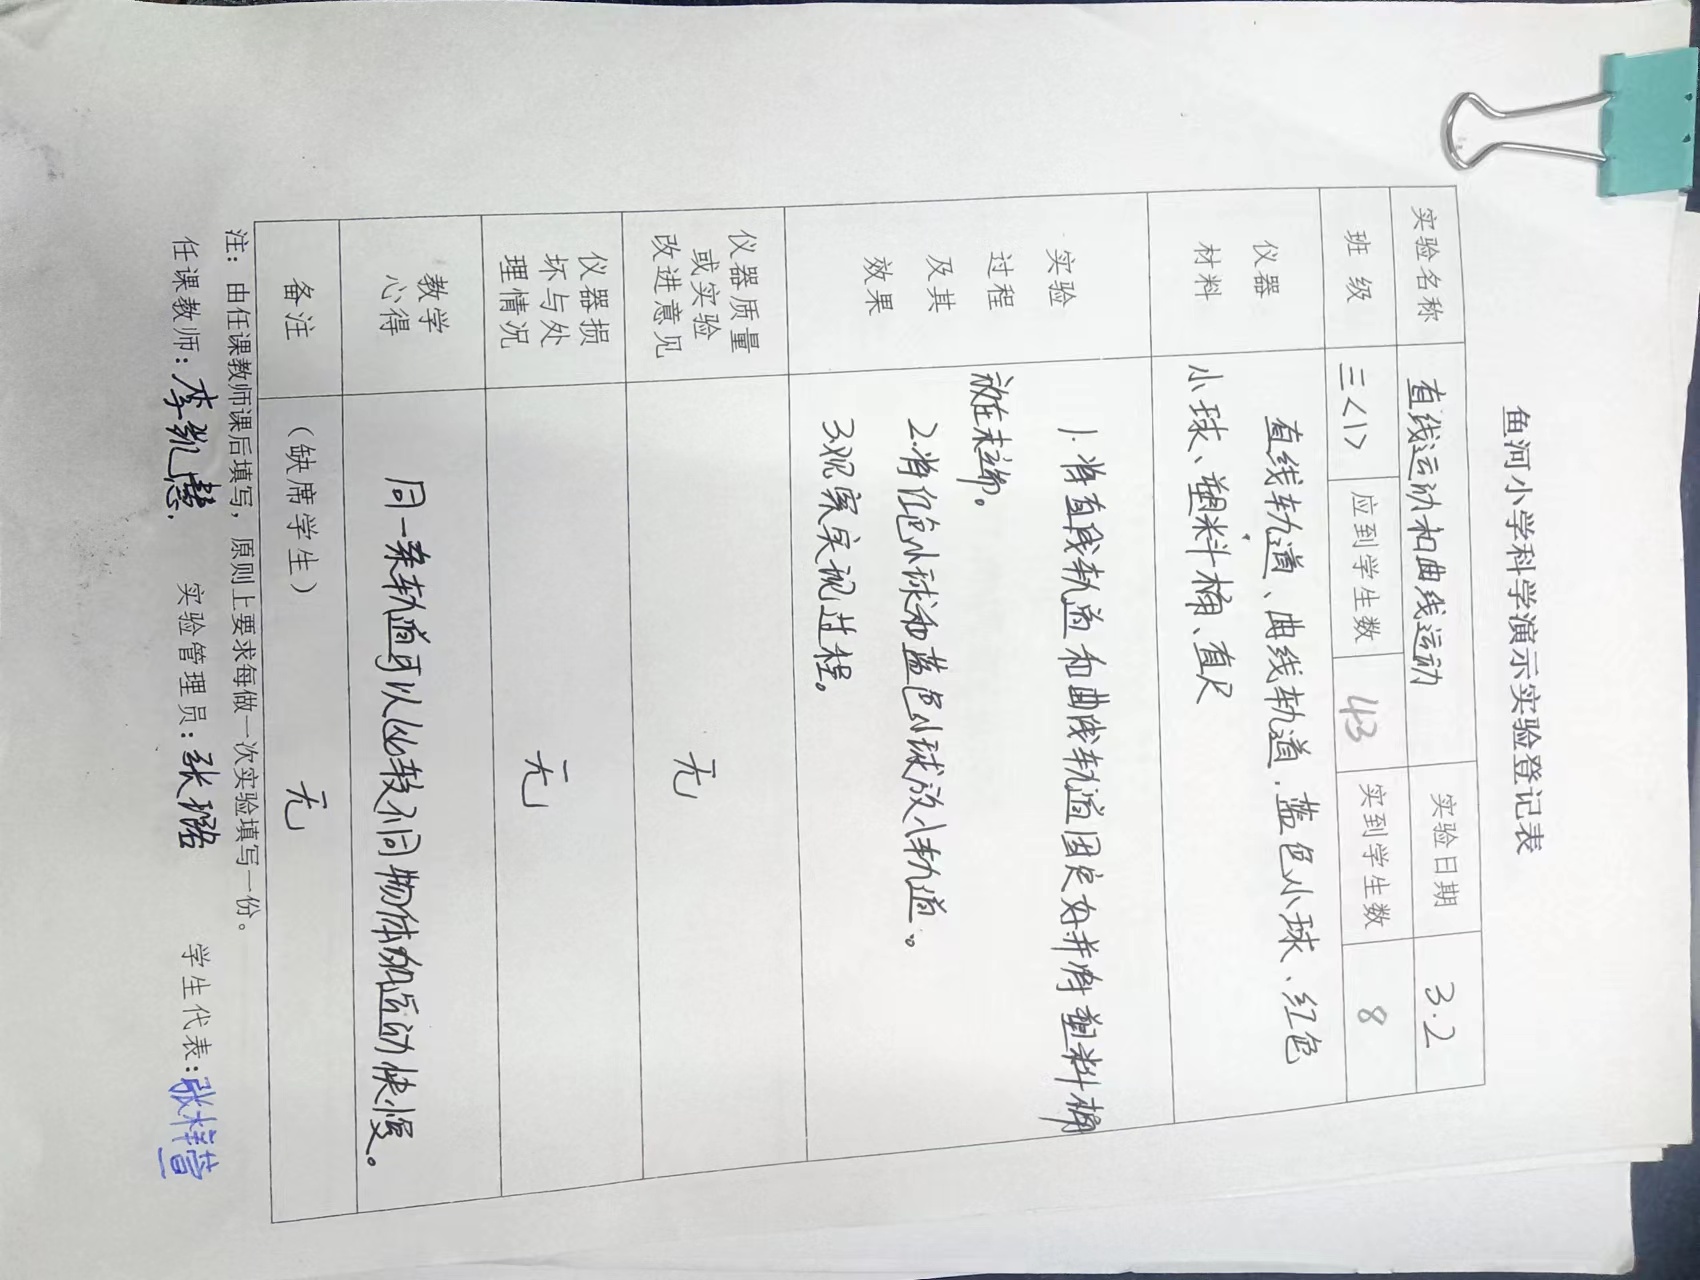 鱼河小学科学演示实验登记表
实验名称 直线运动和曲线运动 实验日期 3.2
班 级 三<1> 应到学生数 43 实到学生数 8
仪器
材料
直线轨道、曲线轨道、蓝色小球、红色
小球、塑料桶、直尺
实验
过程
及其
效果
1.将直线轨道和曲线轨道固定好并将塑料桶
放在末端。
2.将红色小球和蓝色小球放入轨道。
3.观察实现过程。
仪器质量
或实验
改进意见
无
仪器损
坏与处
理情况
无
教学
心得
同一条轨道可以比较不同物体的运动快慢。
备注 (缺席学生) 无
注：由任课教师课后填写，原则上要求每做一次实验填写一份。
任课教师：李凯慧. 实验管理员：张璐 学生代表：张梓萱